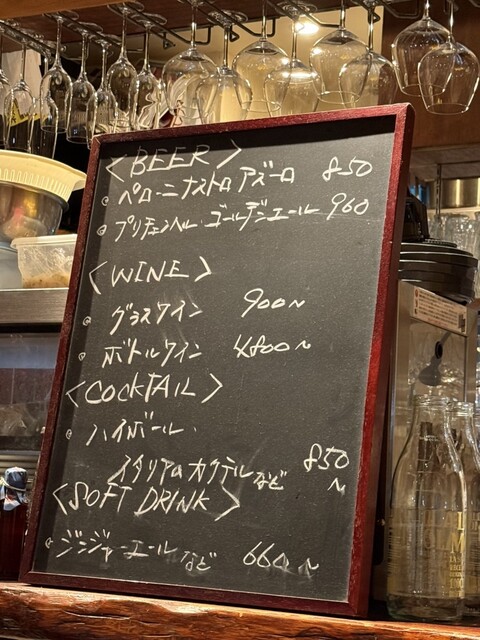 <BEER>
• ペローニ ナストロアズーロ 850
• プリチェンペル・ゴールデンエール 960
<WINE>
• グラスワイン 900〜
• ボトルワイン 4800〜
<COCKTAIL>
• ハイボール・
イタリアのカクテルなど 850〜
<SOFT DRINK>
• ジンジャーエールなど 660〜